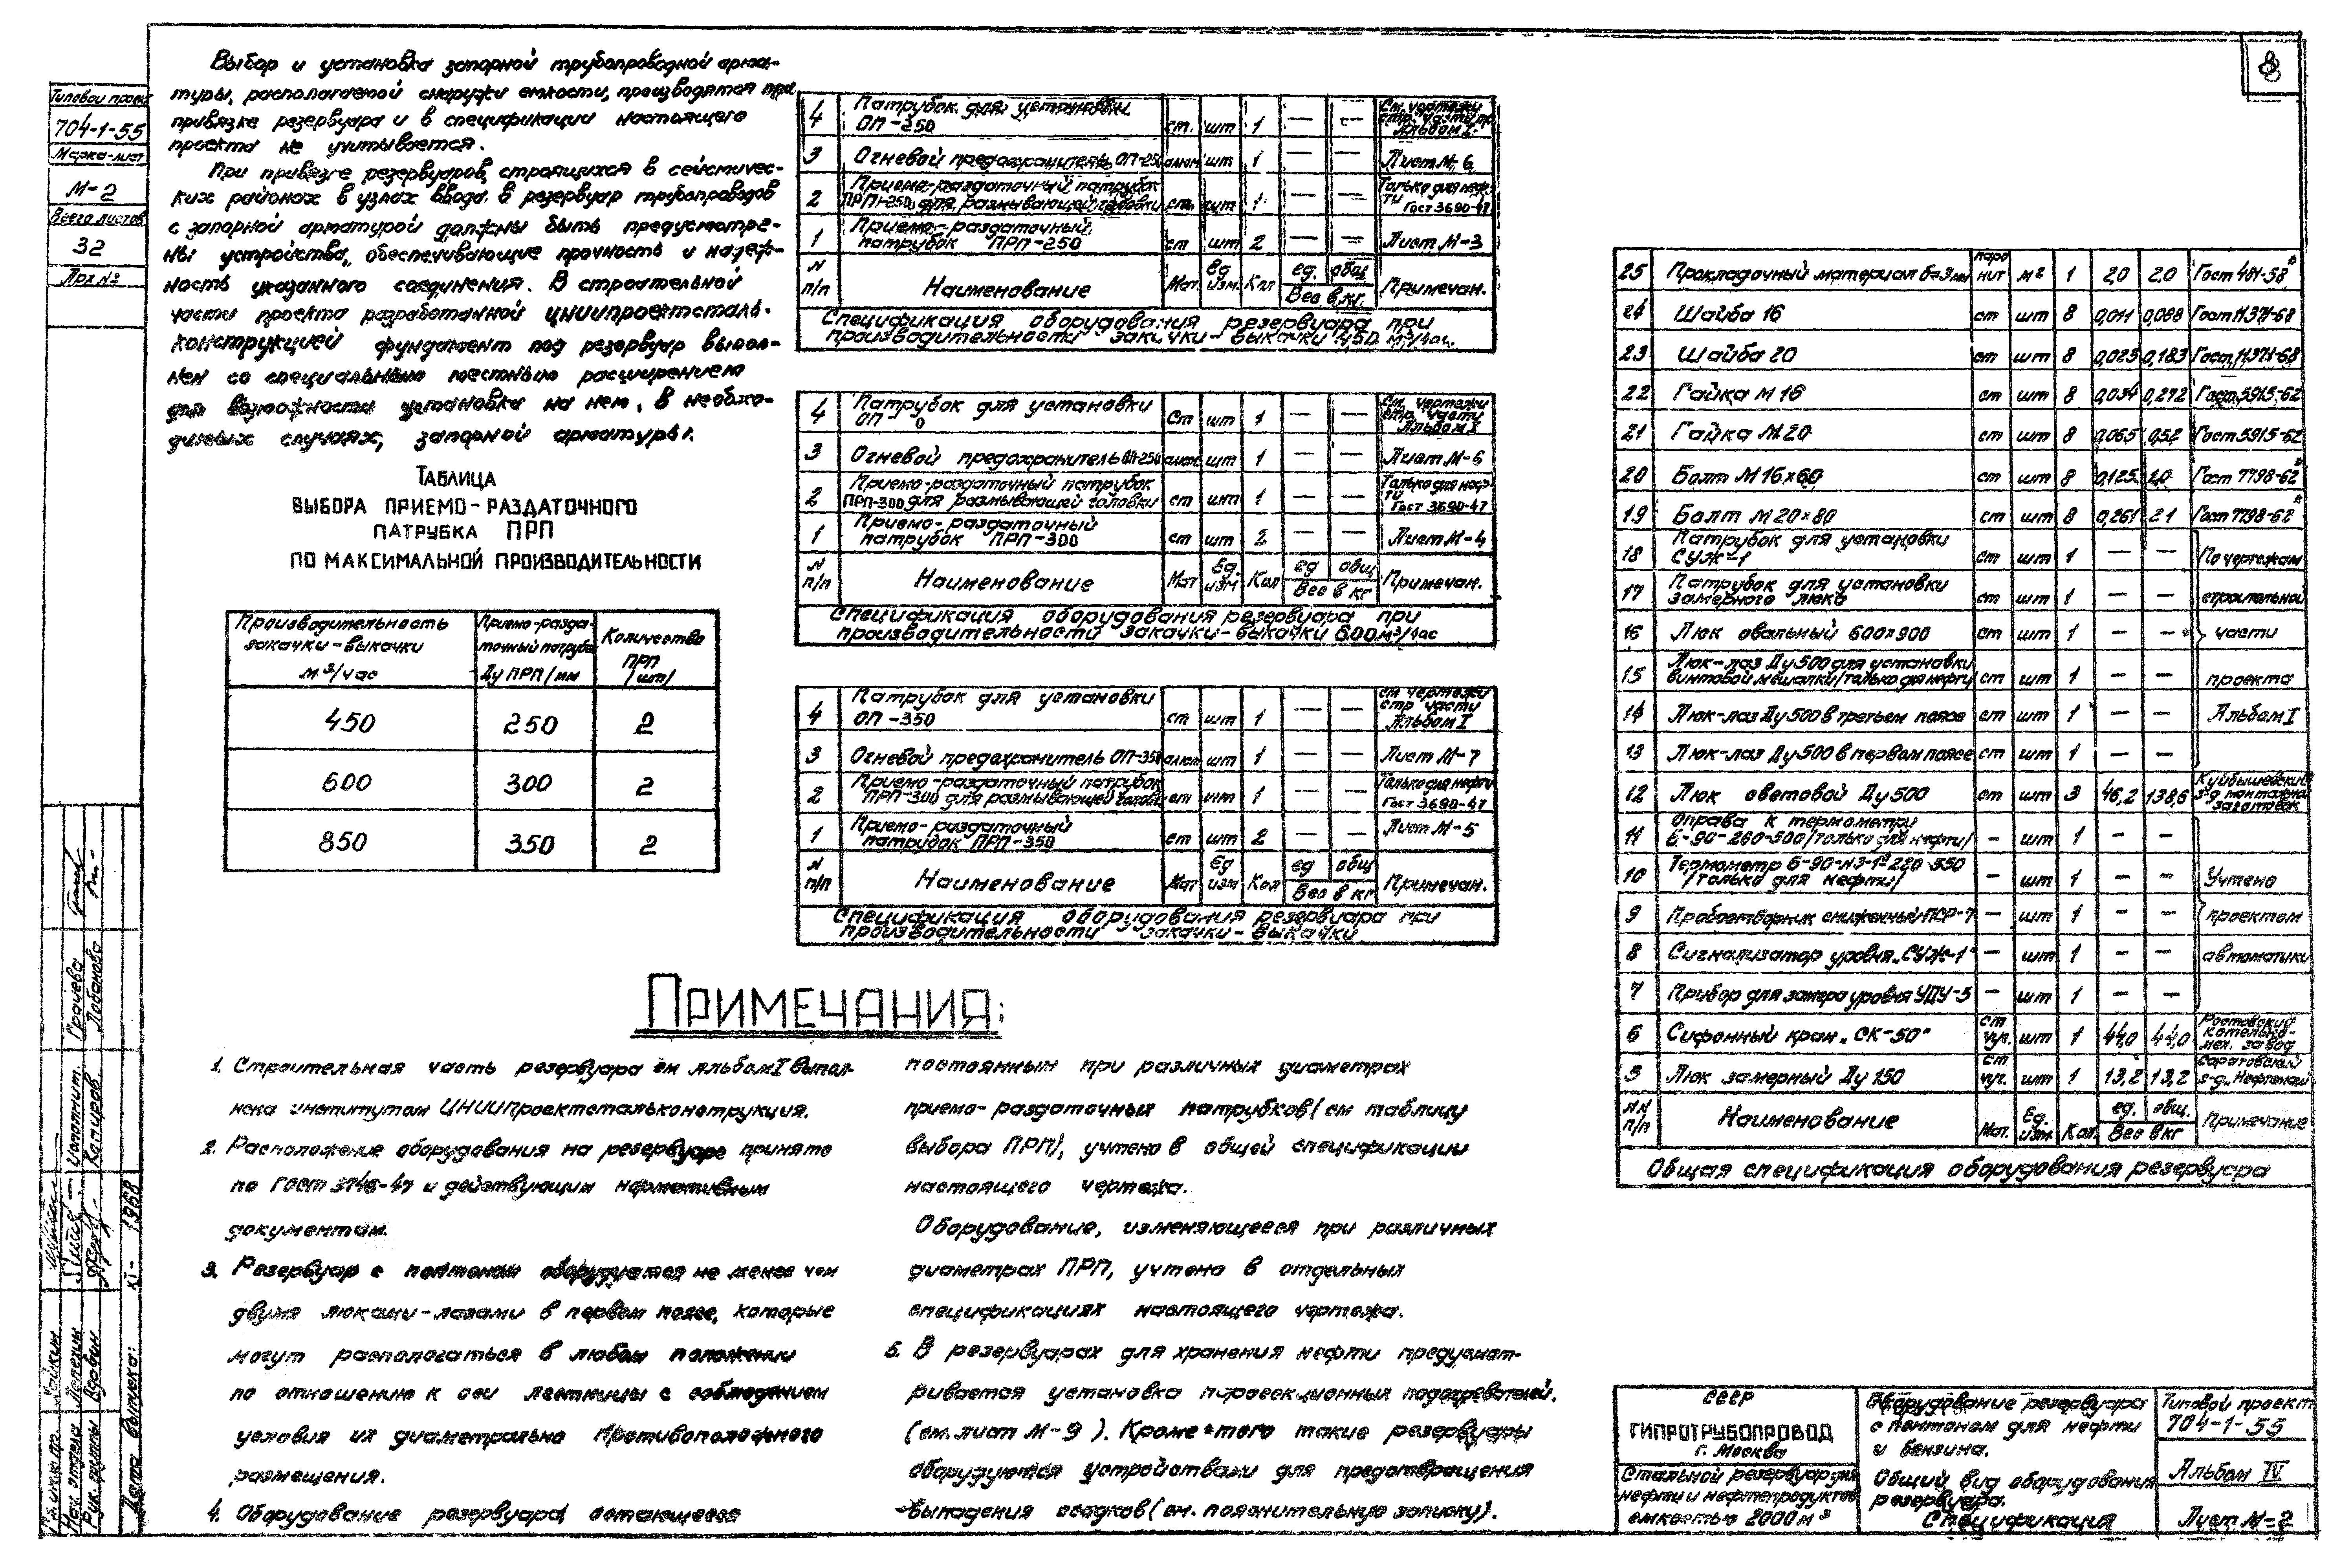 8
Типовой проект
704-1-55
Марка-лист
М-2
Всего листов
32
Арх №
Выбор и установка запорной трубопроводной арма-
туры, располагаемой снаружи емкости, производятся при
привязке резервуара и в спецификации настоящего
проекта не учитывается.
При привязке резервуаров, строящихся в сейсмичес-
ких районах в узлах ввода в резервуар трубопроводов
с запорной арматурой должны быть предусмотре-
ны устройства, обеспечивающие прочность и надеж-
ность указанного соединения. В строительной
части проекта разработанной ЦНИИпроектсталь-
конструкцией фундамент под резервуар выпол-
нен со специальным местным расширением
для возможности установки на нем, в необхо-
димых случаях, запорной арматуры.
Таблица
выбора приемо-раздаточного
патрубка ПРП
по максимальной производительности
Производительность закачки-выкачки м³/час | Приемо-разда-точный патрубок Ду ПРП/мм | Количество ПРП /шт/
450 250 2
600 300 2
850 350 2
4 Патрубок для установки ОП-250 ст. шт 1 — — См. чертежи стр. части пр. Альбом I
3 Огневой предохранитель ОП-250 алюм шт 1 — — Лист М-6
2 Приемо-раздаточный патрубок ПРП-250 для размывающей головки ст. шт 1 — — Только для неф-ти Гост 3690-47
1 Приемо-раздаточный патрубок ПРП-250 ст шт 2 — — Лист М-3
N п/п Наименование Мат. Ед. изм. Кол ед. общ Вес в кг. Примечан.
Спецификация оборудования резервуара при
производительности закачки-выкачки 450 м³/час.
4 Патрубок для установки ОП- 0 Ст шт 1 — — См. чертежи стр. части Альбом I
3 Огневой предохранитель ОП-250 алюм шт 1 — — Лист М-6
2 Приемо-раздаточный патрубок ПРП-300 для размывающей головки ст шт 1 — — Только для неф-ти Гост 3690-47
1 Приемо-раздаточный патрубок ПРП-300 ст шт 2 — — Лист М-4
N п/п Наименование Мат Ед. изм Кол ед общ Вес в кг Примечан.
Спецификация оборудования резервуара при
производительности закачки-выкачки 600 м³/час
4 Патрубок для установки ОП-350 ст шт 1 — — см чертежи стр части Альбом I
3 Огневой предохранитель ОП-350 алюм шт 1 — — Лист М-7
2 Приемо-раздаточный патрубок ПРП-300 для размывающей головки ст шт 1 — — Только для нефти Гост 3690-47
1 Приемо-раздаточный патрубок ПРП-350 ст шт 2 — — Лист М-5
N п/п Наименование Мат Ед изм Кол ед общ Вес в кг Примечан.
Спецификация оборудования резервуара при
производительности закачки-выкачки
Примечания:
1. Строительная часть резервуара см альбом I выпол-
нена институтом ЦНИИПроектстальконструкция.
2. Расположение оборудования на резервуаре принято
по Гост 3746-47 и действующим нормативным
документам.
3. Резервуар с понтоном оборудуется не менее чем
двумя люками-лазами в первом поясе, которые
могут располагаться в любом положении
по отношению к оси лестницы с соблюдением
условия их диаметрально противоположного
размещения.
4. Оборудование резервуара, остающееся
постоянным при различных диаметрах
приемо-раздаточных патрубков (см таблицу
выбора ПРП), учтено в общей спецификации
настоящего чертежа.
Оборудование, изменяющееся при различных
диаметрах ПРП, учтено в отдельных
спецификациях настоящего чертежа.
5. В резервуарах для хранения нефти предусмат-
ривается установка паросекционных подогревателей.
(см. лист М-9). Кроме того такие резервуары
оборудуются устройствами для предотвращения
выпадения осадков (см. пояснительную записку).
25 Прокладочный материал б=3 мм паро нит м² 1 2,0 2,0 Гост 481-58*
24 Шайба 16 ст шт 8 0,011 0,088 Гост 11371-68
23 Шайба 20 ст шт 8 0,023 0,183 Гост 11371-68
22 Гайка М16 ст шт 8 0,034 0,272 Гост 5915-62
21 Гайка М20 ст шт 8 0,065 0,52 Гост 5915-62
20 Болт М16×60 ст шт 8 0,125 1,0 Гост 7798-62*
19 Болт М20×80 ст шт 8 0,261 2,1 Гост 7798-62*
18 Патрубок для установки СУЖ-1 ст шт 1 — — По чертежам
17 Патрубок для установки замерного люка ст шт 1 — — строительной
16 Люк овальный 600×900 ст шт 1 — — части
15 Люк-лаз Ду 500 для установки винтовой мешалки/только для нефти/ ст шт 1 — — проекта
14 Люк-лаз Ду 500 в третьем поясе ст шт 1 — — Альбом I
13 Люк-лаз Ду 500 в первом поясе ст шт 1 — —
12 Люк световой Ду 500 ст шт 3 46,2 138,6 Куйбышевский з-д монтажных заготовок
11 Оправа к термометру Б-90-260-500/только для нефти/ — шт 1 — —
10 Термометр Б-90-N3-1° 220-550 /только для нефти/ — шт 1 — — Учтено
9 Пробоотборник сниженный ПСР-7 — шт 1 — — проектом
8 Сигнализатор уровня „СУЖ-1" — шт 1 — — автоматики
7 Прибор для замера уровня УДУ-5 — шт 1 — —
6 Сифонный кран „СК-50" ст чуг. шт 1 44,0 44,0 Ростовский котельно-мех. завод
5 Люк замерный Ду 150 ст чуг. шт 1 13,2 13,2 Саратовский з-д „Нефтемаш
NN п/п Наименование Мат. Ед. изм. Кол. ед. общ. Вес в кг Примечание
Общая спецификация оборудования резервуара
СССР
ГИПРОТРУБОПРОВОД
г. Москва
Стальной резервуар для
нефти и нефтепродуктов
емкостью 2000 м³
Оборудование резервуара
с понтоном для нефти
и бензина.
Общий вид оборудования
резервуара.
Спецификация
Типовой проект
704-1-55
Альбом IV
Лист М-2
Гл. инж. пр.
Нач. отдела Лепехин
Рук. группы Вдовин
Исполнит. Грачева
Копиров. Лобанова
Дата выпуска: XI- 1968